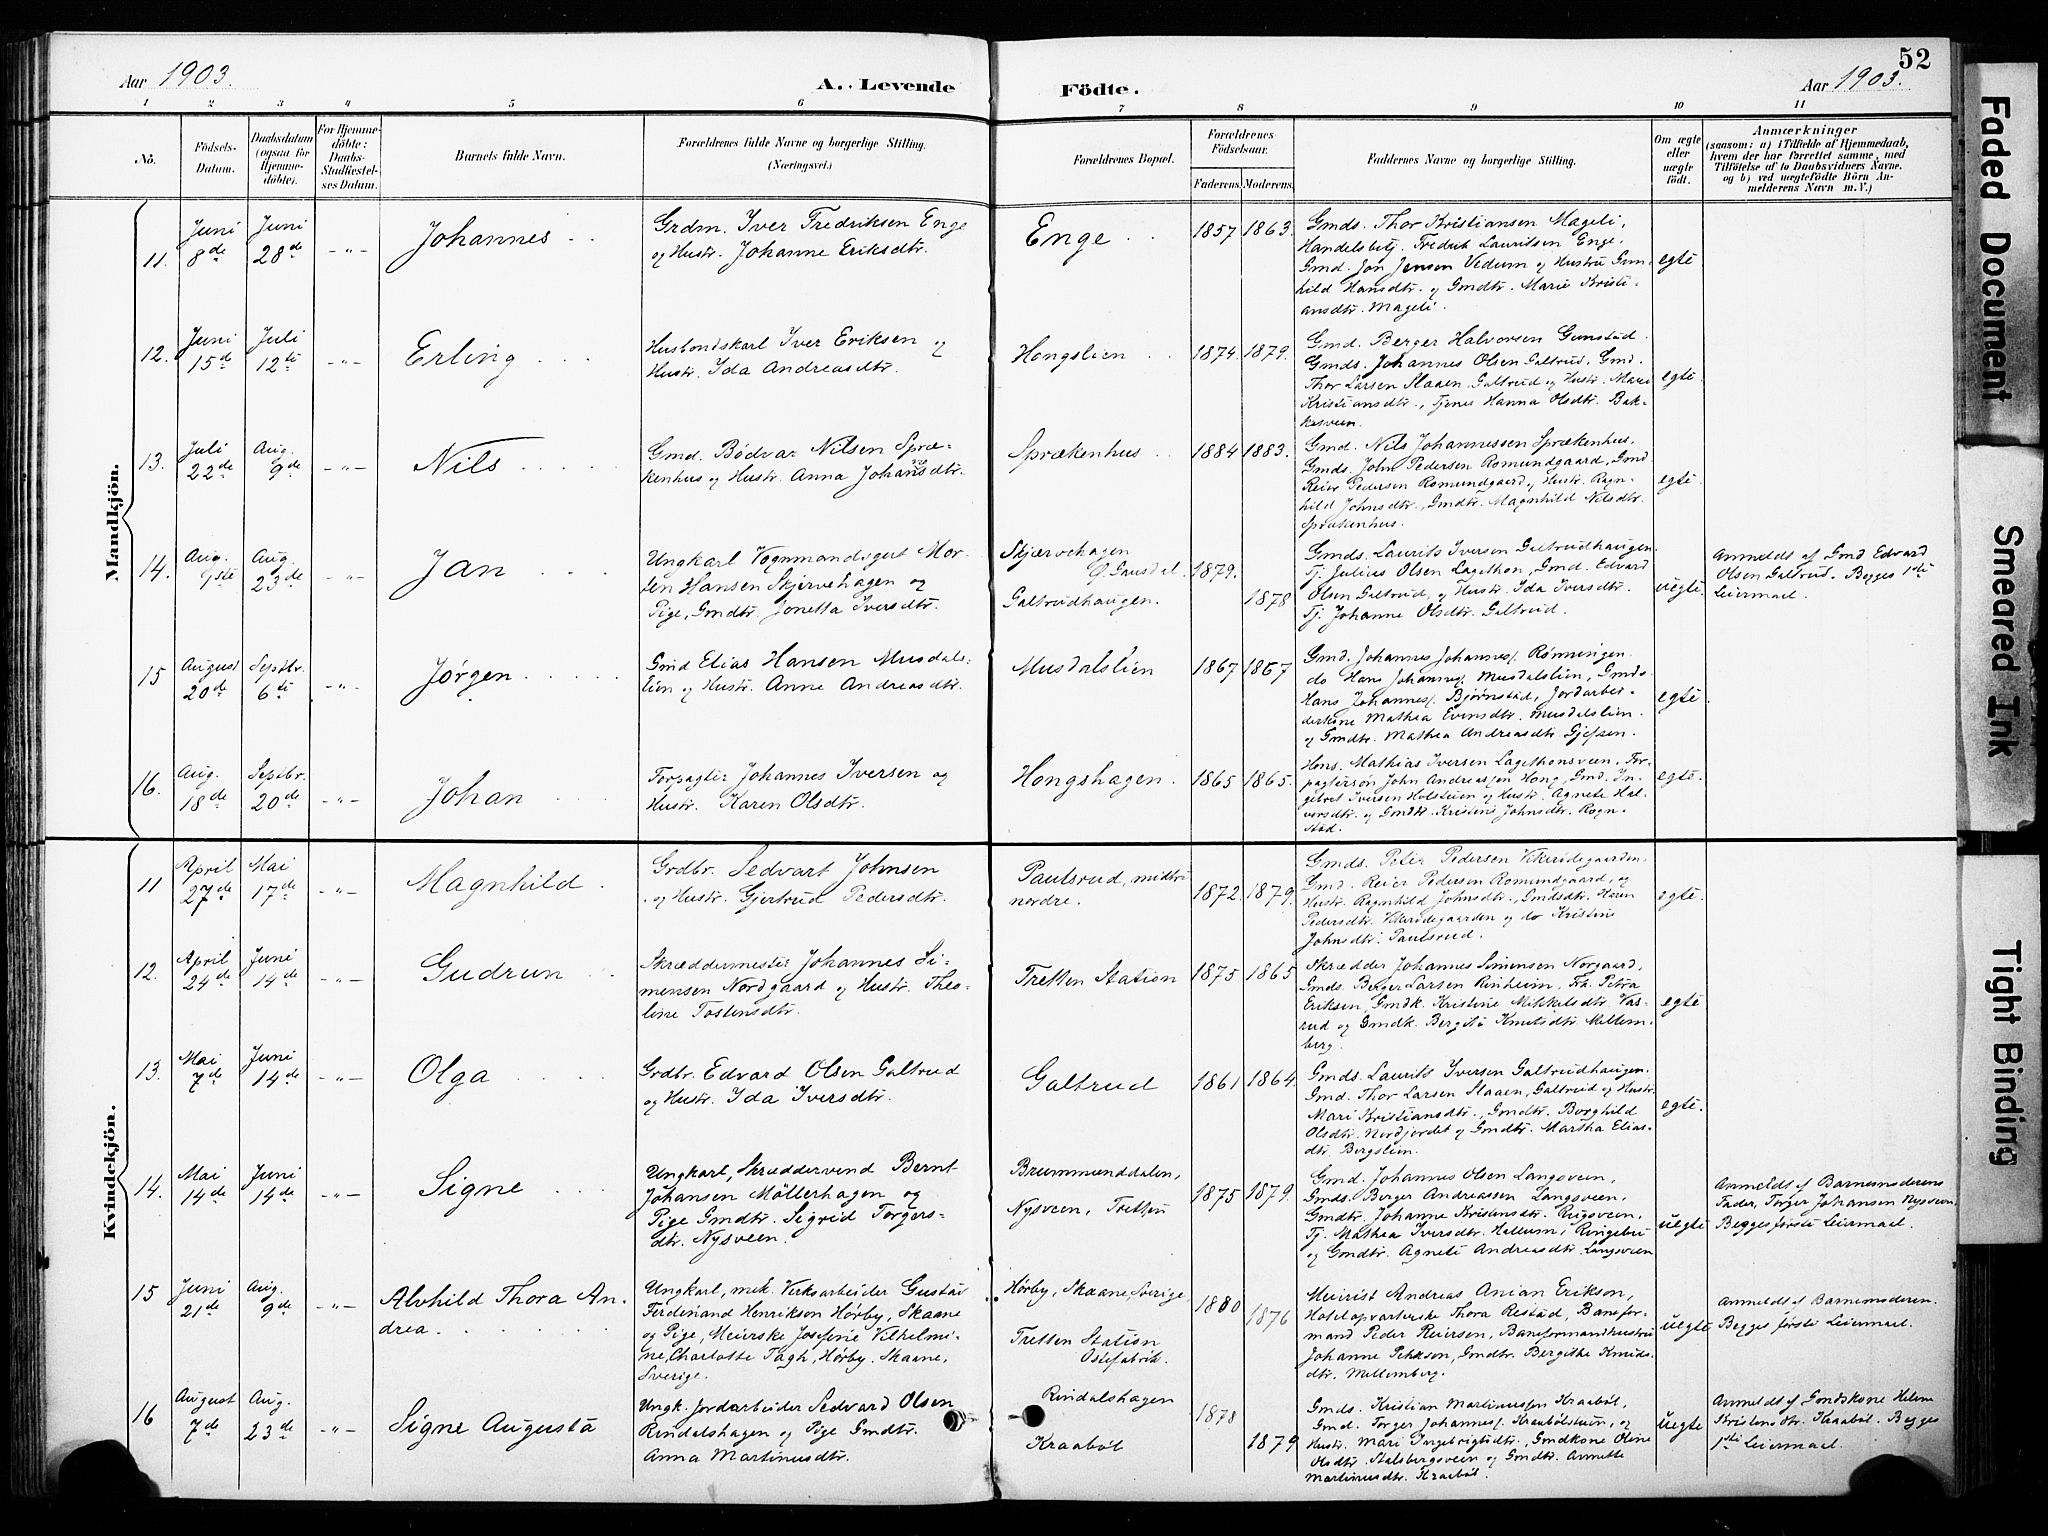 52
Aar 1903.
A. Levende
Födte.
Aar 1903.
1 2 3 4 5 6 7 8 9 10 11
No.
Födsels-
Datum.
Daabsdatum
(ogsaa for
Hjemme-
döbte).
For Hjemme-
döbte:
Daabs-
Stadfæstel-
ses Datum.
Barnets fulde Navn.
Forældrenes fulde Navne og borgerlige Stilling.
(Næringsvei.)
Forældrenes Bopæl.
Forældrenes
Födselsaar.
Faderens. Moderens.
Faddernes Navne og borgerlige Stilling.
Om ægte
eller
uægte
födt.
Anmærkninger
(saasom: a) i Tilfælde af Hjemmedaab,
hvem der har forrettet samme, med
Tilföielse af to Daabsvidners Navne.
og b) ved uægtefödte Börn An-
melderens Navn m. V.)
Mandkjön.
11.
Juni
8de
Juni
28de
-"-
Johannes
Grdm. Iver Fredriksen Enge
og Hustr. Johanne Eriksdtr.
Enge
1857 1863.
Gmds. Thor Kristiansen Mageli,
Handelsbetj. Fredrik Lauritsen Enge,
Gmd. Jon Jensen Vedum og Hustru Gun-
hild Hansdtr. og Gmdtr. Marie Kristi-
ansdtr. Mageli.
egte
12.
Juni
15d
Juli
12te
-"-
Erling
Husbondskarl Iver Eriksen og
Hustr. Ida Andreasdtr.
Hongslien
1874. 1879.
Gmd. Berger Halvorsen Gunstad.
Gmds. Johannes Olsen Galtrud, Gmd.
Thor Larsen Slaaen, Galtrud og Hustr. Mari
Kristiansdtr., Tjenes Hanna Olsdtr. Bak-
kesveen.
egte.
13.
Juli
22de
Aug.
9de
-"-
Nils
Gmd. Bødvar Nilsen Spræ-
kenhus og Hustr. Anna Johansdtr.
Sprækenhus
1884 1883.
Gmd. Nils Johannessen Sprækenhus,
Gmds. John Pedersen Romundgaard, Gmd.
Reier Pedersen Romundgaard og Hustr. Ragn-
hild Johnsdtr., Gmdtr. Magnhild Nilsdtr.
Sprækenhus.
egte
14.
Aug.
1ste
Aug.
23de
-"-
Jan
Ungkarl Vognmandsgut Mor-
ten Hansen Skjervehagen og
Pige, Gmdtr. Jonetta Iversdtr.
Skjærvehagen
Ø. Gausdal.
Galtrudhaugen.
1879.
1878
Gmds. Laurits Iversen Galtrudhaugen.
Tj. Julius Olsen Lagethon, Gmd. Edvard
Olsen Galtrud, og Hustr. Ida Iversdtr.
Tj. Johanne Olsdtr. Galtrud.
uegte.
Anmeldt af Gmd Edvard
Olsen Galtrud. Begges 1ste
Leiermaal.
15
August
20de
Septbr.
6te
-"-
Jørgen
Gmd Elias Hansen Musdals-
lien og Hustr. Anne Andreasdtr.
Musdalslien
1867 1867
Gmd. Johannes Johannes. Rønningen.
do Hans Johannes. Musdalslien, Gmds.
Hans Johannes. Bjørnstad, Jordarbei-
derkone Mathea Evensdtr. Musdalslien.
og Gmdtr. Mathea Andreasdtr Gjefsen.
egte
16.
Aug.
18de
Septbr.
20de
-"-
Johan
Forpagter Johannes Iversen og
Hustr. Karen Olsdtr.
Hongshagen.
1865 1865.
Hons. Mathias Iversen Lagethonsveen, For-
pagtersøn John Andreassen Hong, Gmd. In-
gebret Iversen Holstuen og Hustr. Agnete Hal-
vorsdtr. og Gmdtr. Kristine Johnsdtr. Rogn-
stad.
egte.
Kvindekjön.
11
April
27de
Mai
17de
-"-
Magnhild
Grdbr. Sedvart Johnsen
og Hustr. Gjertrud Pedersdtr.
Paulsrud, midtre
nordre.
1872. 1879.
Gmds. Peter Pedersen Vikeridegaarden.
Gmd. Reier Pedersen Romundgaard, og
Hustr. Ragnhild Johnsdtr., Gmdsdtr. Karen
Pedersdtr. Vikeridegaarden og do Kristine
Johnsdtr. Paulsrud.
egte.
12.
April
24de
Juni
14de
-"-
Gudrun
Skræddermester Johannes Si-
mensen Nordgaard og Hustr. Theo-
line Tostensdtr.
Tretten Station
1875 1865
Skrædder Johannes Simensen Norgaard,
Gmds. Berger Larsen Rinheim, Frk. Petra
Eriksen, Gmdk. Kristine Mikkelsdtr. Vas-
rud og Gmdk. Bergite Knutsdtr. Mellem-
berg.
egte
13.
Mai
7de
Juni
14de
-"-
Olga
Grdbr. Edvard Olsen Galtrud
og Hustr. Ida Iversdtr.
Galtrud
1861 1864.
Gmds. Laurits Iversen Galtrudhaugen.
Gmd. Thor Larsen Slaaen, Galtrud og Hustr.
Mari Kristiansdtr., Gmdtr. Borghild
Olsdtr. Nordjordet og Gmdtr. Martha Elias-
dtr. Bergslien.
egte.
14.
Mai
14de
Juni
14de
-"-
Signe
Ungkarl, Skræddersvend Bernt
Johansen Møllerhagen og
Pige Gmdtr. Sigrid Torgers-
dtr. Nysveen.
Brummunddalen,
Nysveen, Tretten
1875 1879.
Gmd. Johannes Olsen Langsveen,
Gmds. Berger Andreassen Langsveen,
Gmdtr. Johanne Kristensdtr. Rugsveen,
Tj. Mathea Iversdtr. Hellum, Ringebu
og Gmdtr. Agnete Andreasdtr. Langsveen
uegte
Anmeldt af Barnemoderens
Fader, Torger Johansen Nysveen.
Begges første Leiermaal.
15
Juni
21de
Aug.
9de
-"-
Alvhild Thora An-
drea.
Ungkarl, mek. Verksarbeider Gustav
Ferdenand Henrikson Hörby, Skaane
og Pige, Meierske Josefine Vilhelmi-
ne Charlotte Tagh, Hörby. Skaane,
Sverige.
Hörby, Skaane Sverige,
Tretten Station
Ostefabrik.
1880
1876
Meierist Andreas Anian Erikson,
Hotelopvarterske Thora Restad, Banefor-
mand Peder Reiersen, Baneformandhustru
Johanne Petersen, Gmdtr. Bergitte Knuds-
dtr. Mellemberg.
uegte
Anmeldt af Barnemoderen.
Begges første Leiermaal.
16
August
7de
Aug.
23de
-"-
Signe Augusta
Ungk. Jordarbeider Sedvard Olsen
Rindalshagen og Pige Gmdtr.
Anna Martinusdtr.
Rindalshagen
Kraabøl
1878
1879
Gmds. Kristian Martinussen Kraabøl,
Gmd. Torger Johannes. Kraabølstuen, og
Hustr. Mari Ingebrigtsdtr., Gmdkone Oline
Olsdtr. Stalsbergsveen og Gmdtr. Annette
Martinusdtr. Kraabøl.
uegte
Anmeldt af Gmdskone Helene
Kristensdtr. Kraabøl. Begges
1ste Leiermaal.
Faded Document
Smeared Ink
Tight Binding